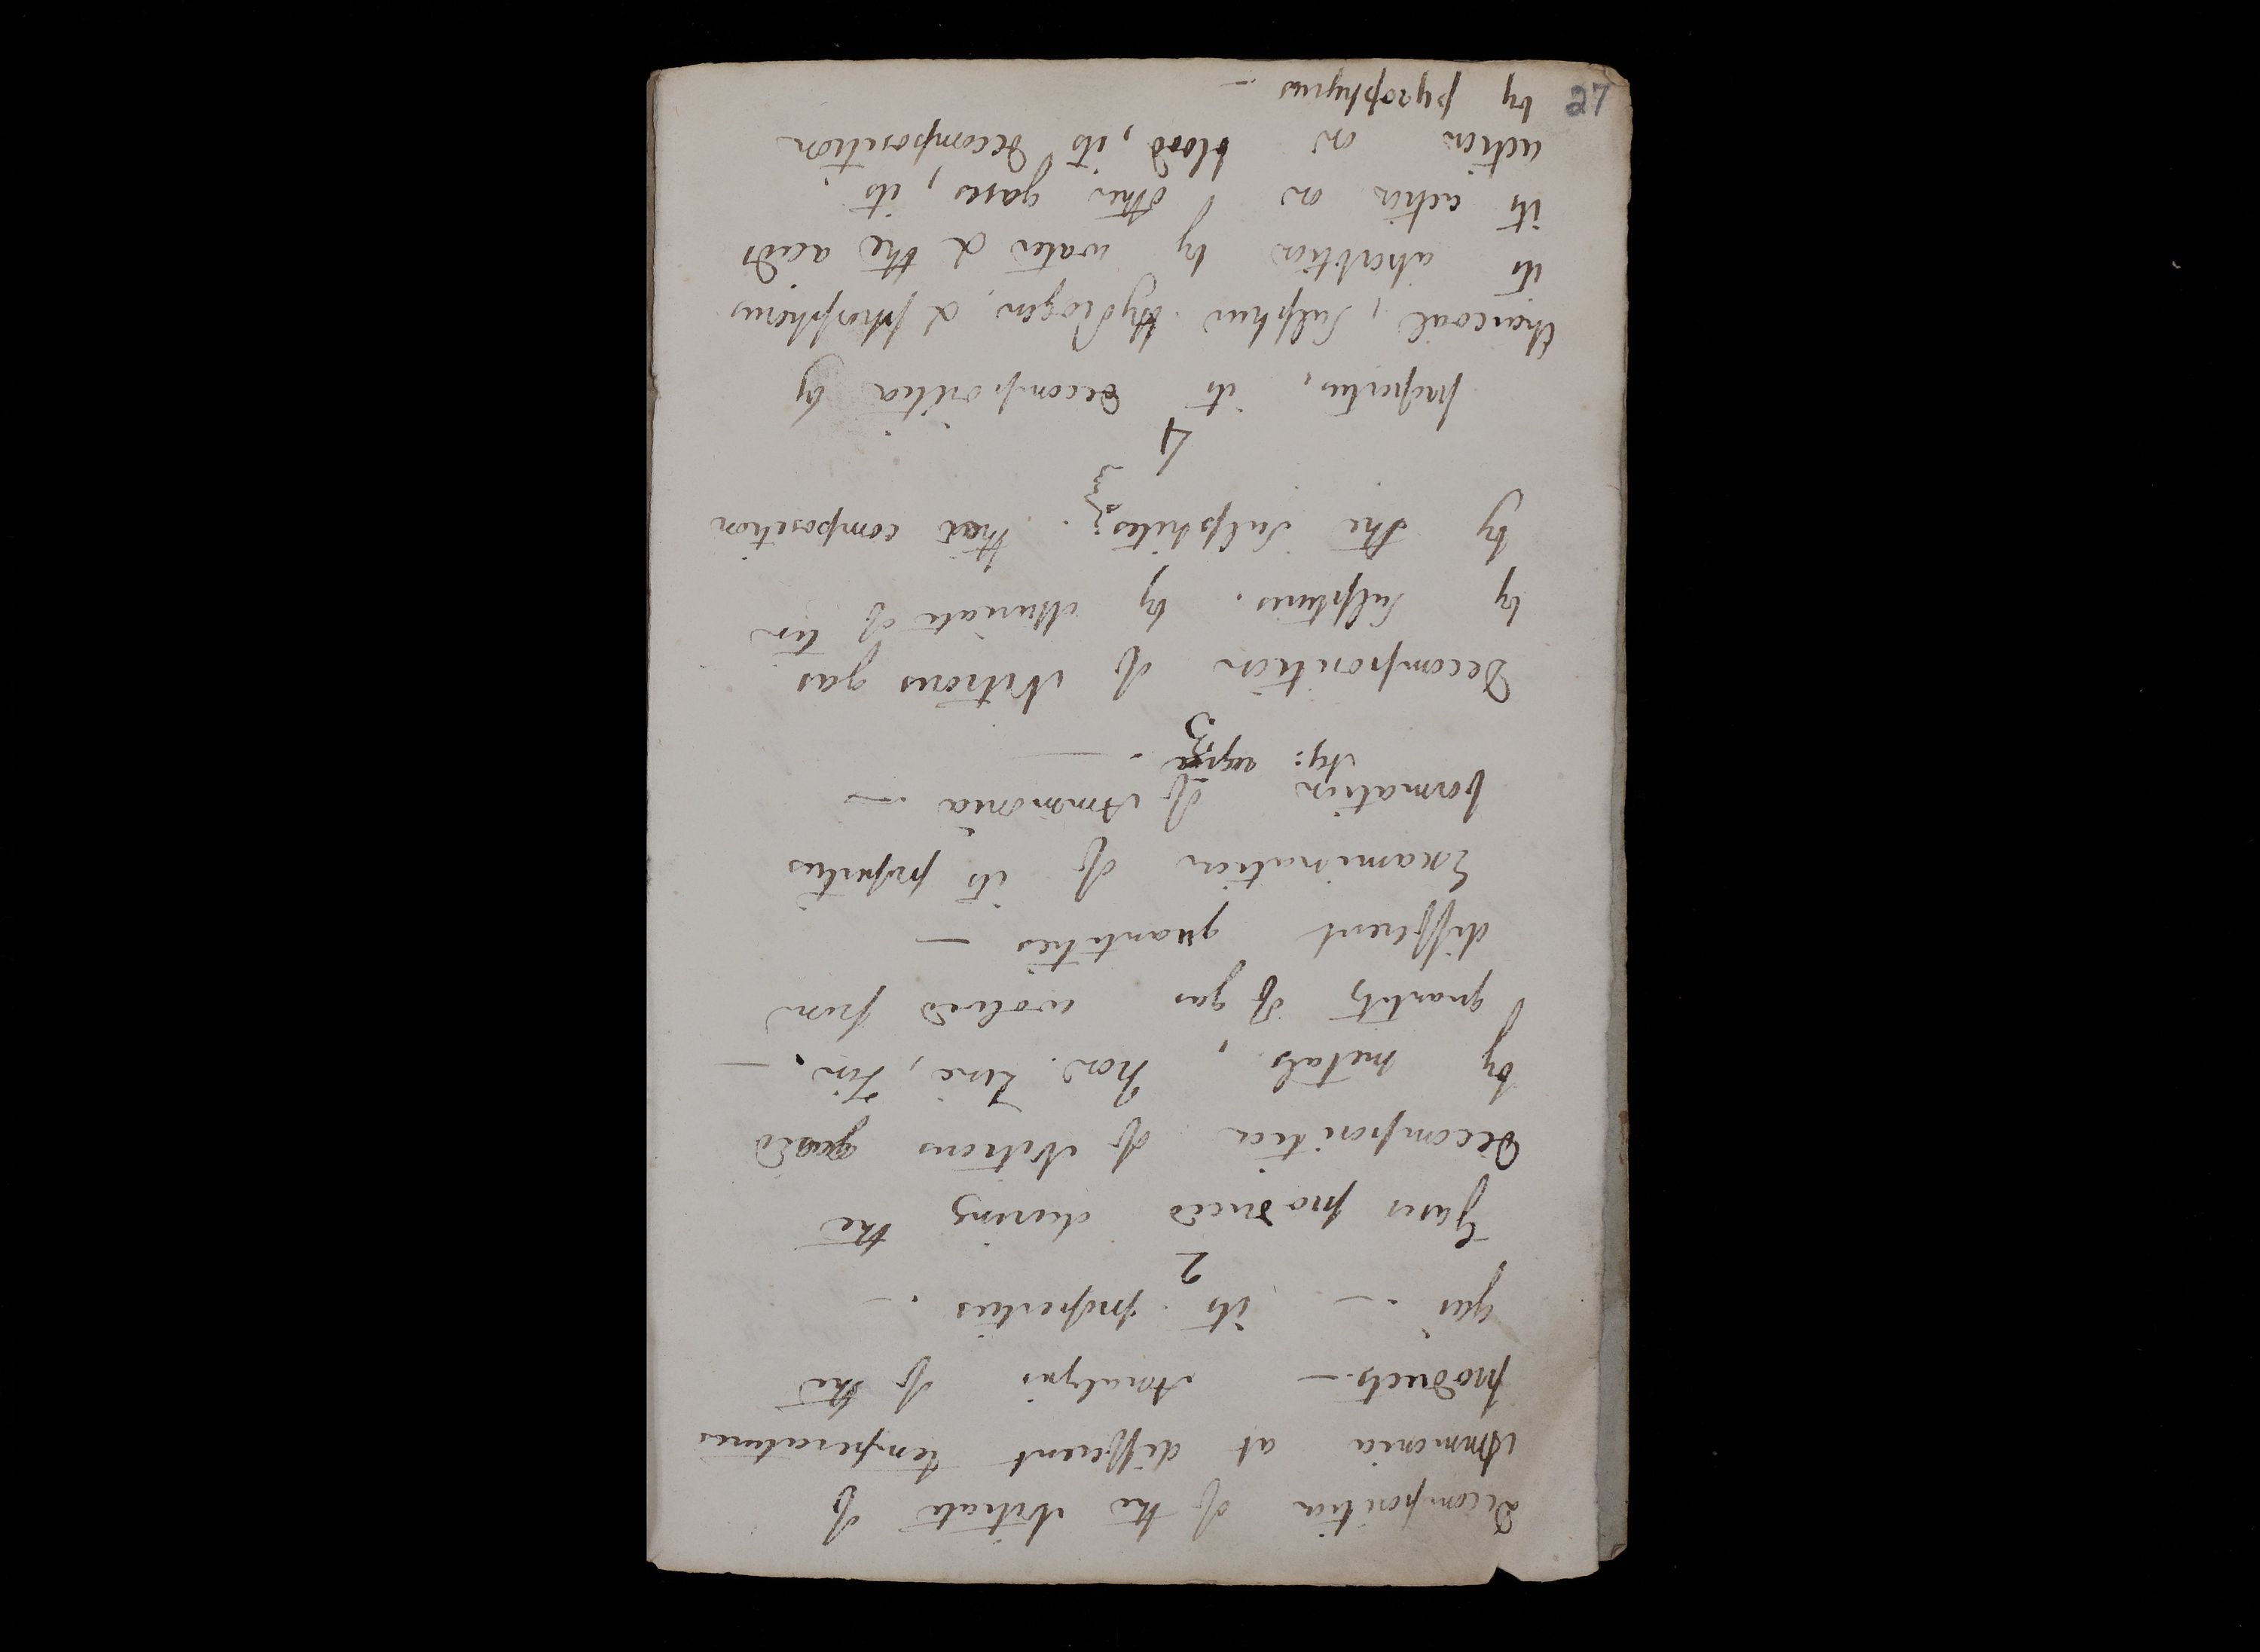 Decomposition of the Nitrate of
Ammonia at different temperatures
products. — Analysis of the
gas — its properties. —
2
Gases produced during the
Decomposition of Nitrous gased
by metals, Iron. Zinc, Tin. —
quantity of gas evolved from
different quantities —
Examination of its properties
formation of Ammonia —
3
Decomposition of Nitrous gas
by Sulphures. by Muriate of tin
by the Sulphites; their composition
4
properties, its decomposition by
Charcoal, Sulphur Hydrogen, & phosphorus
its absorbtion by water & the acids
its action on other gases, its
action on blood, its decomposition
by pyrophyrus —
27